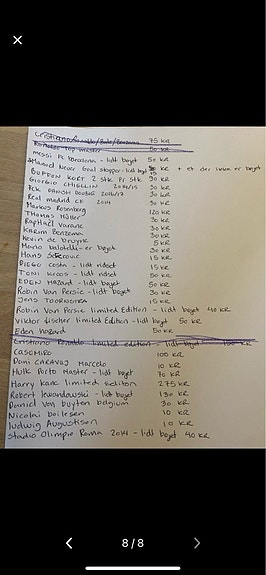 Cristiano Ronaldo/Bale/Benzema 75 KR
Ronaldo Top master 50 KR
Messi Benzema - lidt bøjet 50 KR
Never Goal stopper - lidt bøjet KR + et der ikke er bøjet
BUFFON KORT 2 stk Pr stk 30 KR
GIORGIO CHIELLIN 2014/15 30 KR
DOUBLE 2016/17 30 KR
Real madrid CF 2014 30 KR
Markus Rosenberg 30 KR
THOMAS Müller 120 KR
Raphaël Varane 30 KR
KARIM BENZEMA 30 KR
Kevin de bruyne 30 KR
Mario balotelli - er bøjet 5 KR
Hans 30 KR
DIEGO costa - lidt ridset 15 KR
TONI KROOS - lidt ridset 50 KR
EDEN HAZARD - lidt bøjet 50 KR
Robin Van Persie - lidt bøjet 30 KR
JENS TOORNSTRA 15 KR
Robin Van Persie limited Edition - lidt bøjet 40 KR
Viktor fischer limited Edition - lidt bøjet 50 KR
Eden Hazard 50 KR
Cristiano Ronaldo limited edition - lidt bøjet 150 KR
CASEMIRO 100 KR
Dani CARAVAJ Marcelo 10 KR
Hulk Porto Master - lidt bøjet 70 KR
Harry kane limited edition 275 KR
Robert lewandowski - lidt bøjet 130 KR
Daniel Van buyten belgium 30 KR
Nicolai boilesen 10 KR
ludwig Augustinson 10 KR
Stadio Olimpio Roma 2014 - lidt bøjet 40 KR
8/8